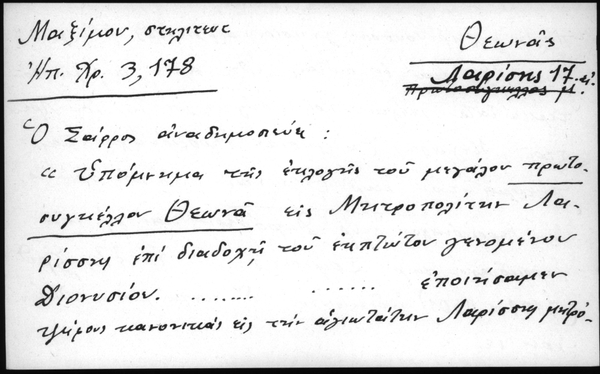 Μαξίμου, στηλιτευτ
Θεωνᾶς
Ἠπ. Χρ. 3, 178
Λαρίσης 17.
Πρωτοσύγκελλος
Ὁ Σάρρος ἀναδημοσιεύει :
« Ὑπόμνημα τῆς ἐκλογῆς τοῦ μεγάλου πρωτο-
συγκέλλου Θεωνᾶ εἰς Μητροπολίτην Λα-
ρίσσης ἐπί διαδοχῇ τοῦ ἐκπτώτου γενομένου
Διονυσίου. ........ ...... ἐποιήσαμεν
ψήφους κανονικάς εἰς τὴν ἁγιωτάτην Λαρίσσης μητρό-